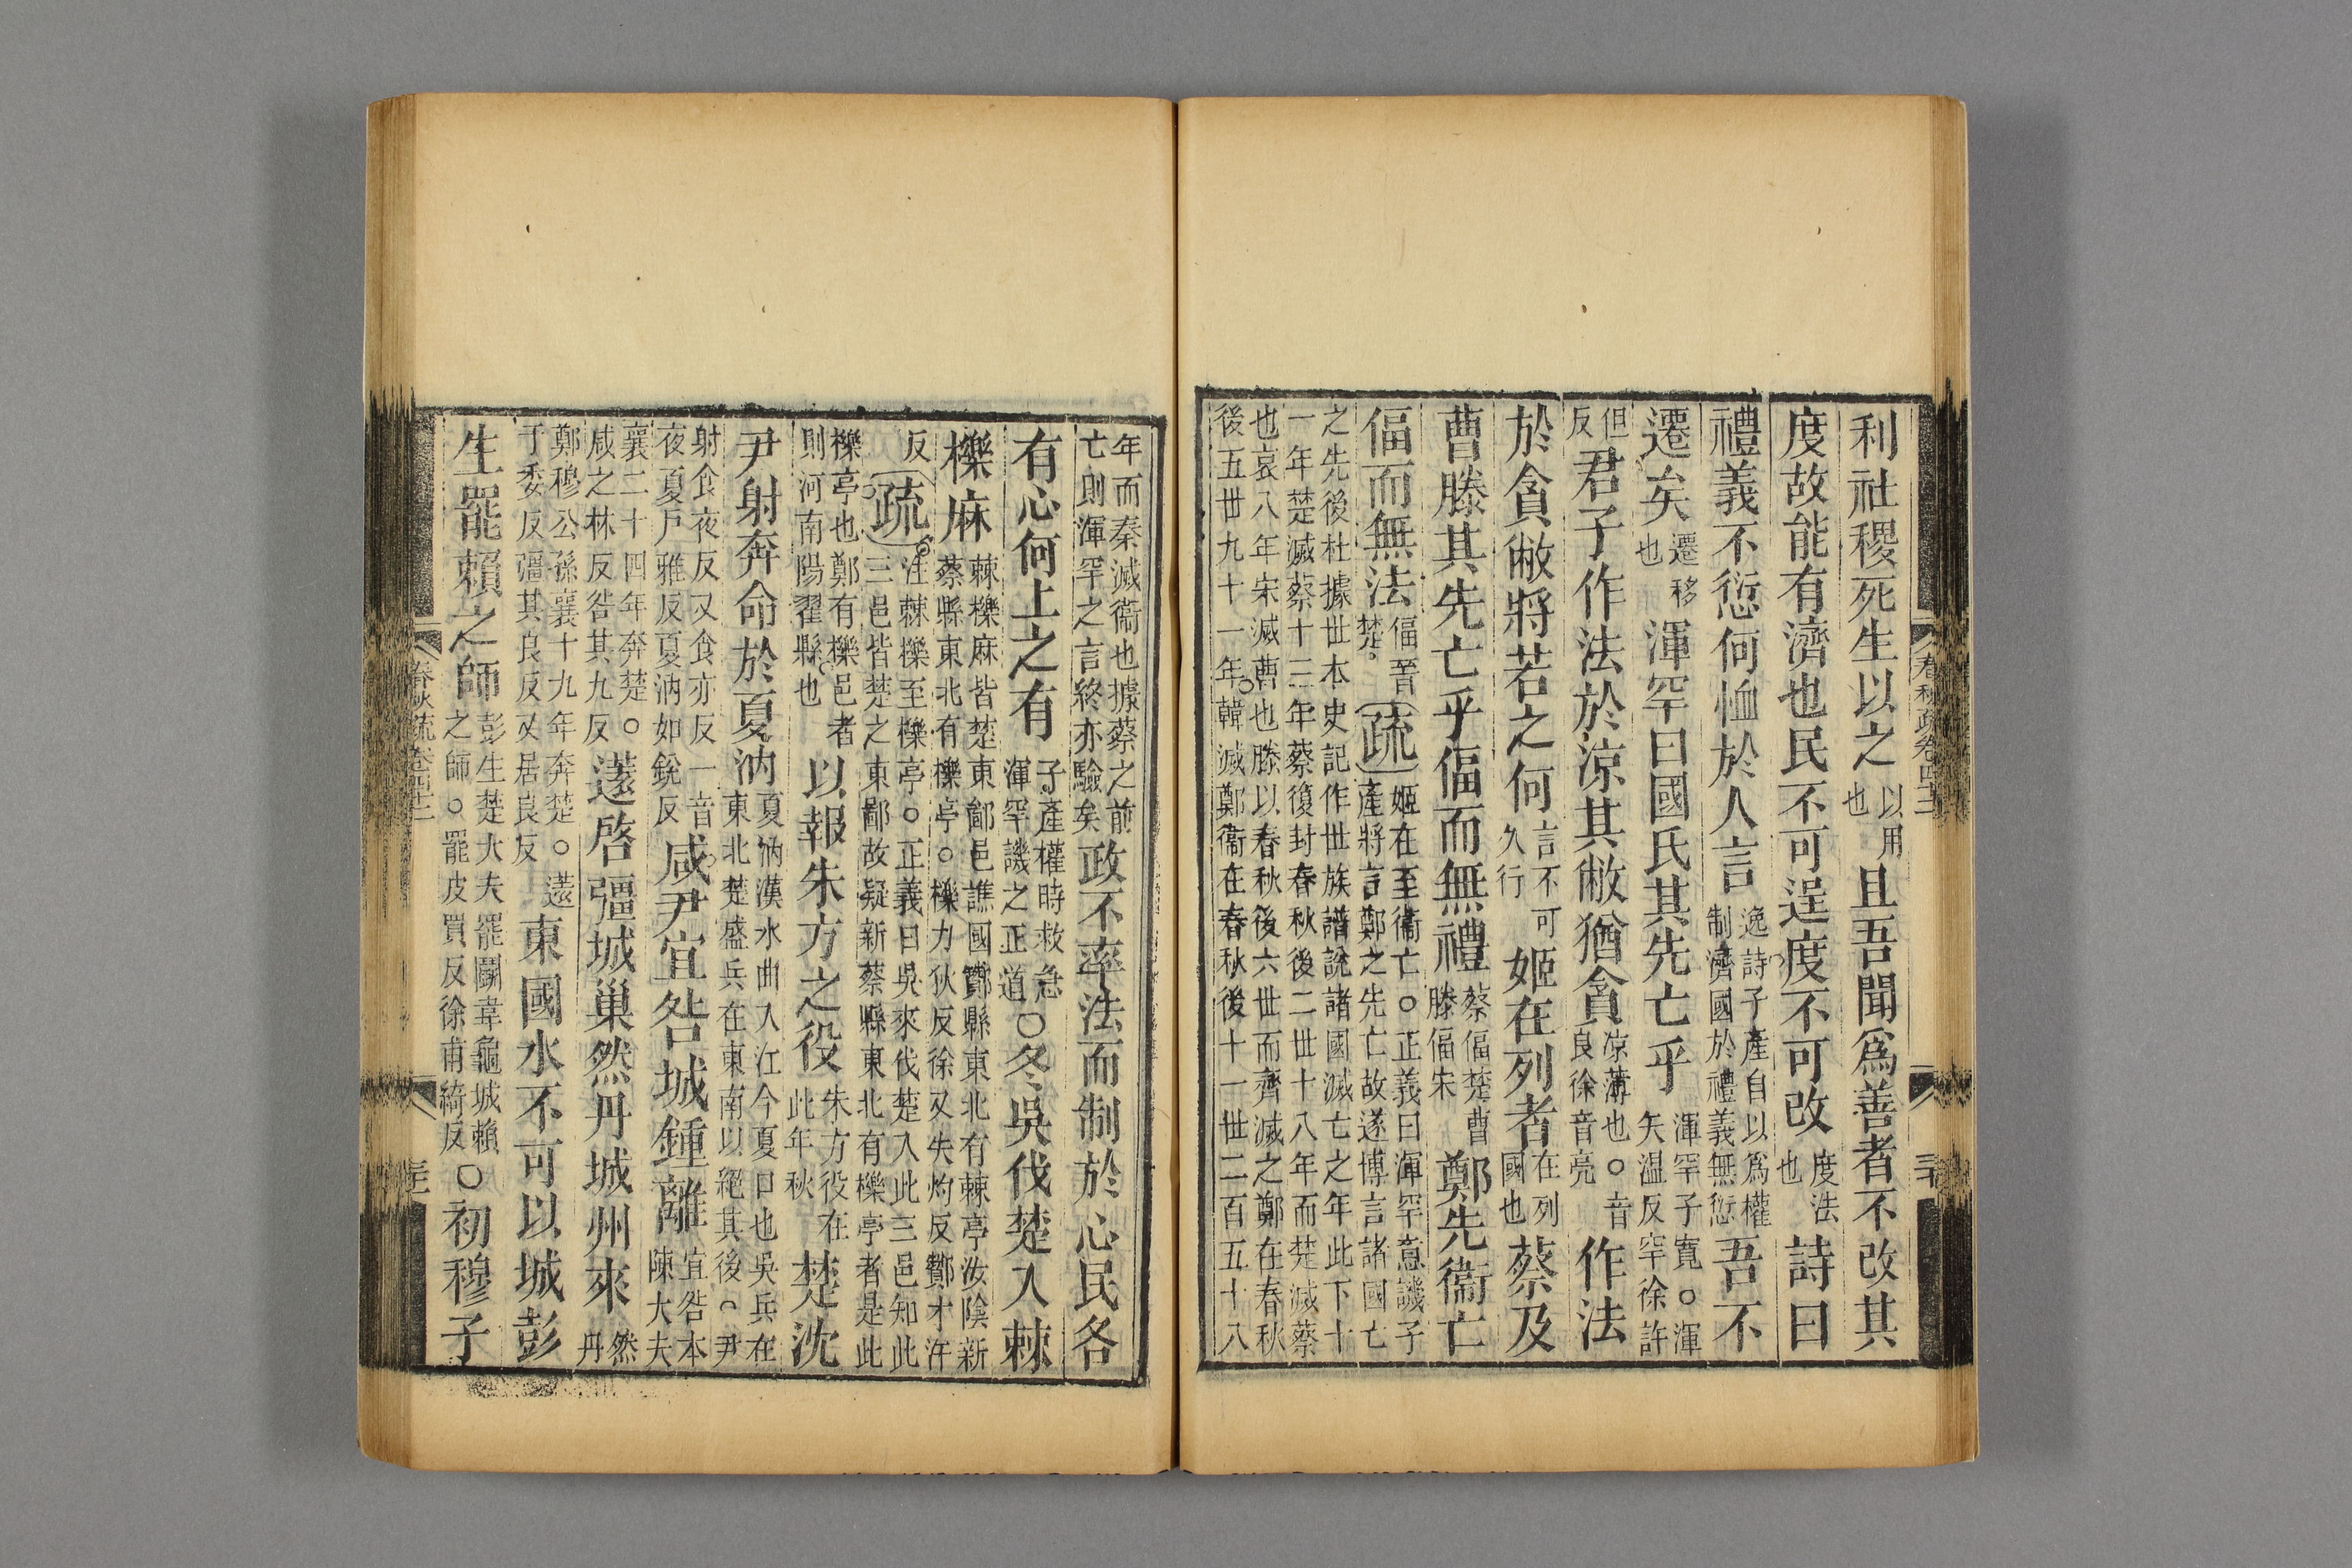 春秋疏卷四十二 三十
利社稷死生以之以用也且吾聞爲善者不改其
度故能有濟也民不可逞度不可改度法也詩曰
禮義不愆何恤於人言逸詩子產自以爲權制濟國於禮義無愆吾不
遷矣遷移也渾罕曰國氏其先亡乎渾罕子寬○渾矢温反罕徐許
但反君子作法於涼其敝猶貪凉薄也○音良徐音亮作法
於貪敝將若之何言不可久行姬在列者在列國也蔡及
曹滕其先亡乎偪而無禮蔡偪楚曹滕偪宋鄭先衞亡
偪而無法偪晉楚疏姬在至衞亡○正義曰渾罕意譏子產將言鄭之先亡故遂博言諸國亡
之先後杜據世本史記作世族譜說諸國滅亡之年此下十一年楚滅蔡十三年蔡復封春秋後二世十八年而楚滅蔡
也哀八年宋滅曹也滕以春秋後六世而齊滅之鄭在春秋後五世九十一年韓滅鄭衞在春秋後十一世二百五十八
年而秦滅衞也據蔡之前亡則渾罕之言終亦驗矣政不率法而制於心民各
有心何上之有子產權時救急渾罕譏之正道○冬吳伐楚入棘
櫟麻棘櫟麻皆楚東鄙邑譙國酇縣東北有棘亭汝陰新蔡縣東北有櫟亭○櫟力狄反徐又失灼反酇才汗
反疏注棘櫟至櫟亭○正義曰吳來伐楚入此三邑知此三邑皆楚之東鄙故疑新蔡縣東北有櫟亭者是此
櫟亭也鄭有櫟邑者則河南陽翟縣也以報朱方之役朱方役在此年秋楚沈
尹射奔命於夏汭夏汭漢水曲入江今夏口也吳兵在東北楚盛兵在東南以絕其後○尹
射食夜反又食亦反一音夜夏戶雅反夏汭如銳反咸尹宜咎城鍾離宜咎本陳大夫
襄二十四年奔楚○咸之林反咎其九反薳啓彊城巢然丹城州來然丹
鄭穆公孫襄十九年奔楚○薳于委反彊其良反又居良反東國水不可以城彭
生罷賴之師彭生楚大夫罷鬭韋龜城賴之師○罷皮買反徐甫綺反○初穆子
春秋疏卷四十二